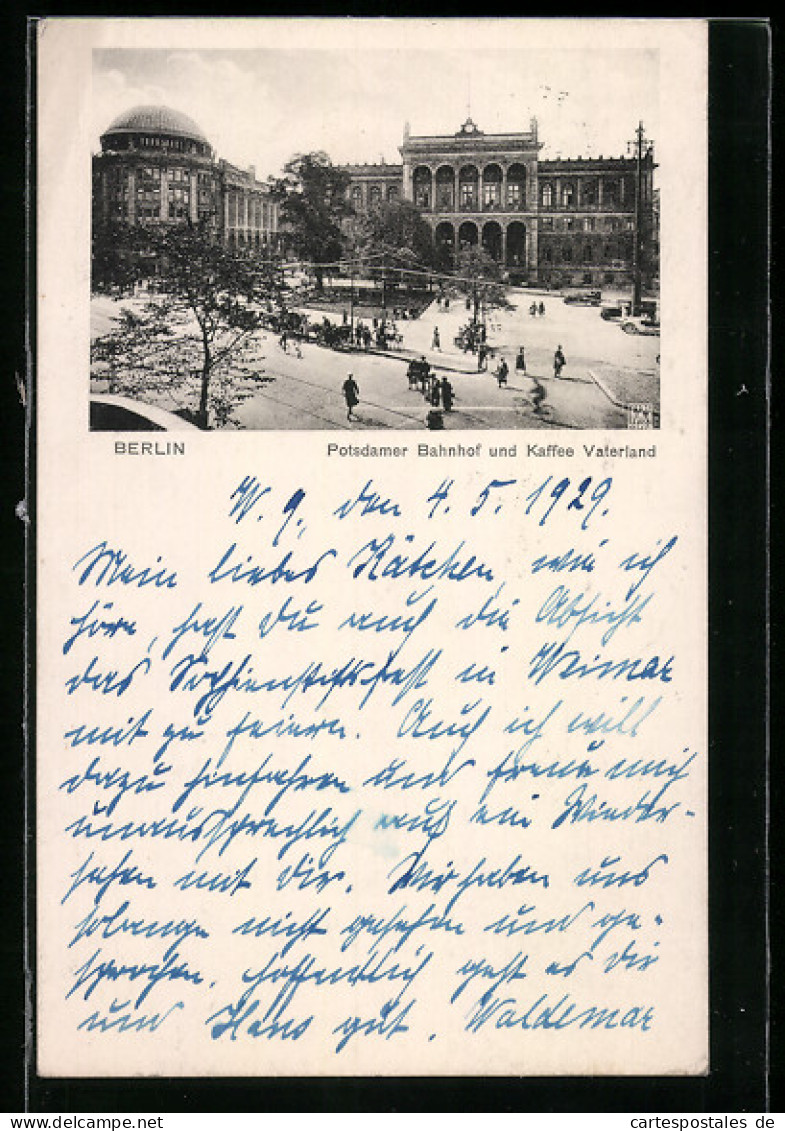 BERLIN
Potsdamer Bahnhof und Kaffee Vaterland
W. 9, den 4. 5. 1929.
Mein liebes Kätchen, wie ich
höre, hast Du auch die Absicht
das Sophienstiftsfest in Weimar
mit zu feiern. Auch ich will
dazu hinfahren und freue mich
unaussprechlich auf ein Wieder-
sehen mit Dir. Wir haben uns
solange nicht gesehen und ge-
sprochen. Hoffentlich geht es Dir
und Hans gut. Waldemar
cartespostales.de